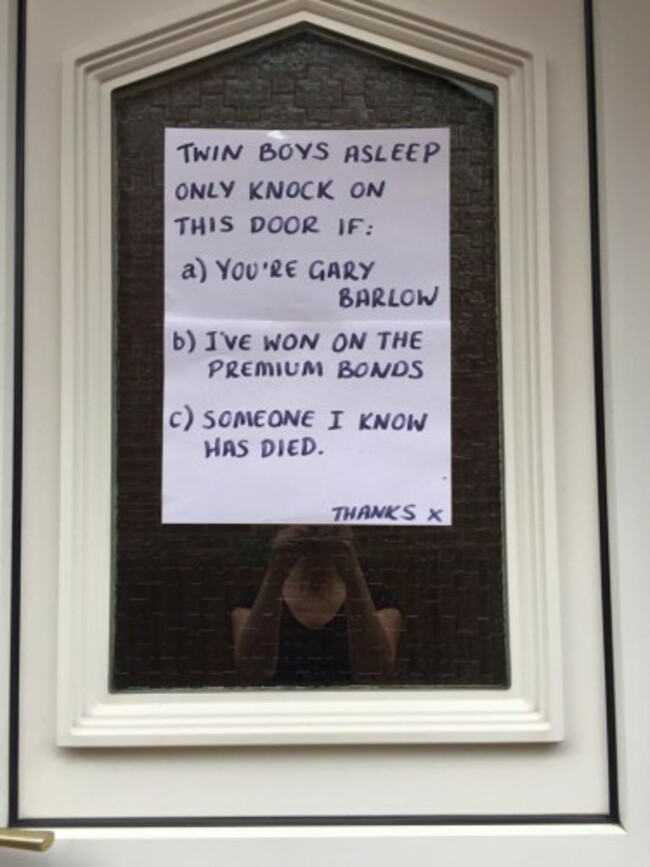 TWIN BOYS ASLEEP
ONLY KNOCK ON
THIS DOOR IF:
a) YOU'RE GARY
BARLOW
b) I'VE WON ON THE
PREMIUM BONDS
c) SOMEONE I KNOW
HAS DIED.
THANKS X